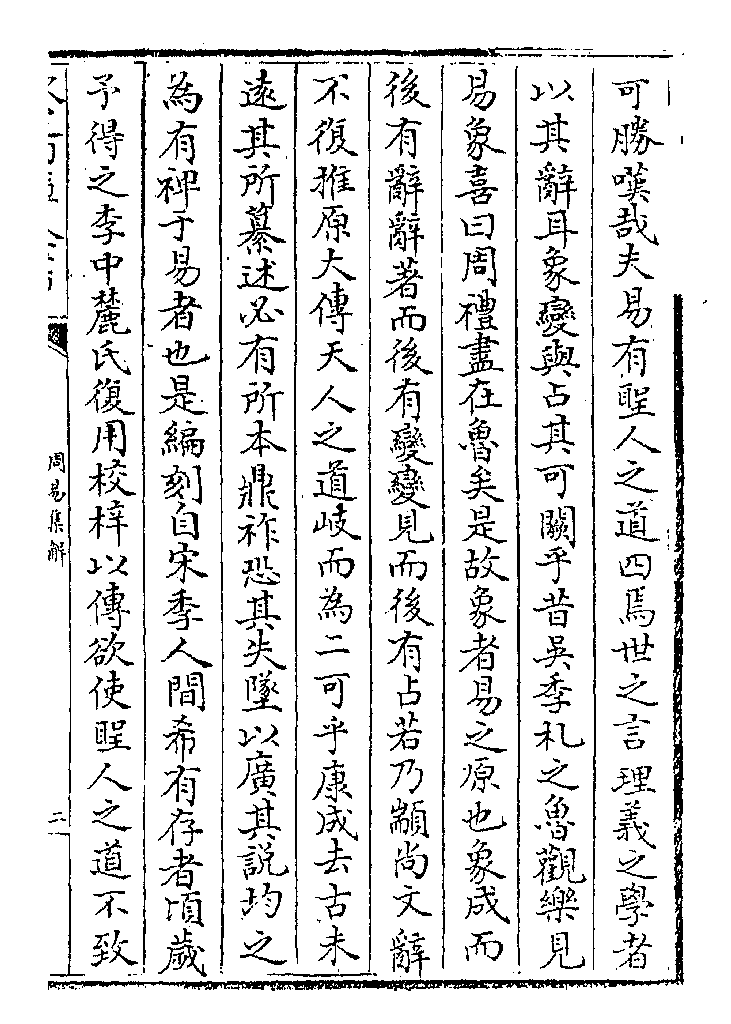 可勝嘆哉夫易有聖人之道四焉世之言理義之學者
以其辭耳象變與占其可闕乎昔吳季札之魯觀樂見
易象喜曰周禮盡在魯矣是故象者易之原也象成而
後有辭辭著而後有變變見而後有占若乃顓尚文辭
不復推原大傳天人之道岐而為二可乎康成去古未
遠其所纂述必有所本鼎祚恐其失墜以廣其説均之
為有裨于易者也是編刻自宋季人間希有存者頃歲
予得之李中麓氏復用校梓以傳欲使聖人之道不致
周易集解
二